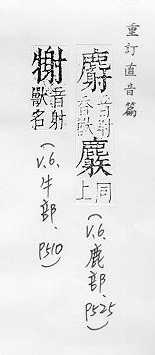 重訂直音篇
麝 音射
香獸
同
上
(V.6.鹿部.P525)
音射
獸名
(V.6.牛部.P510)